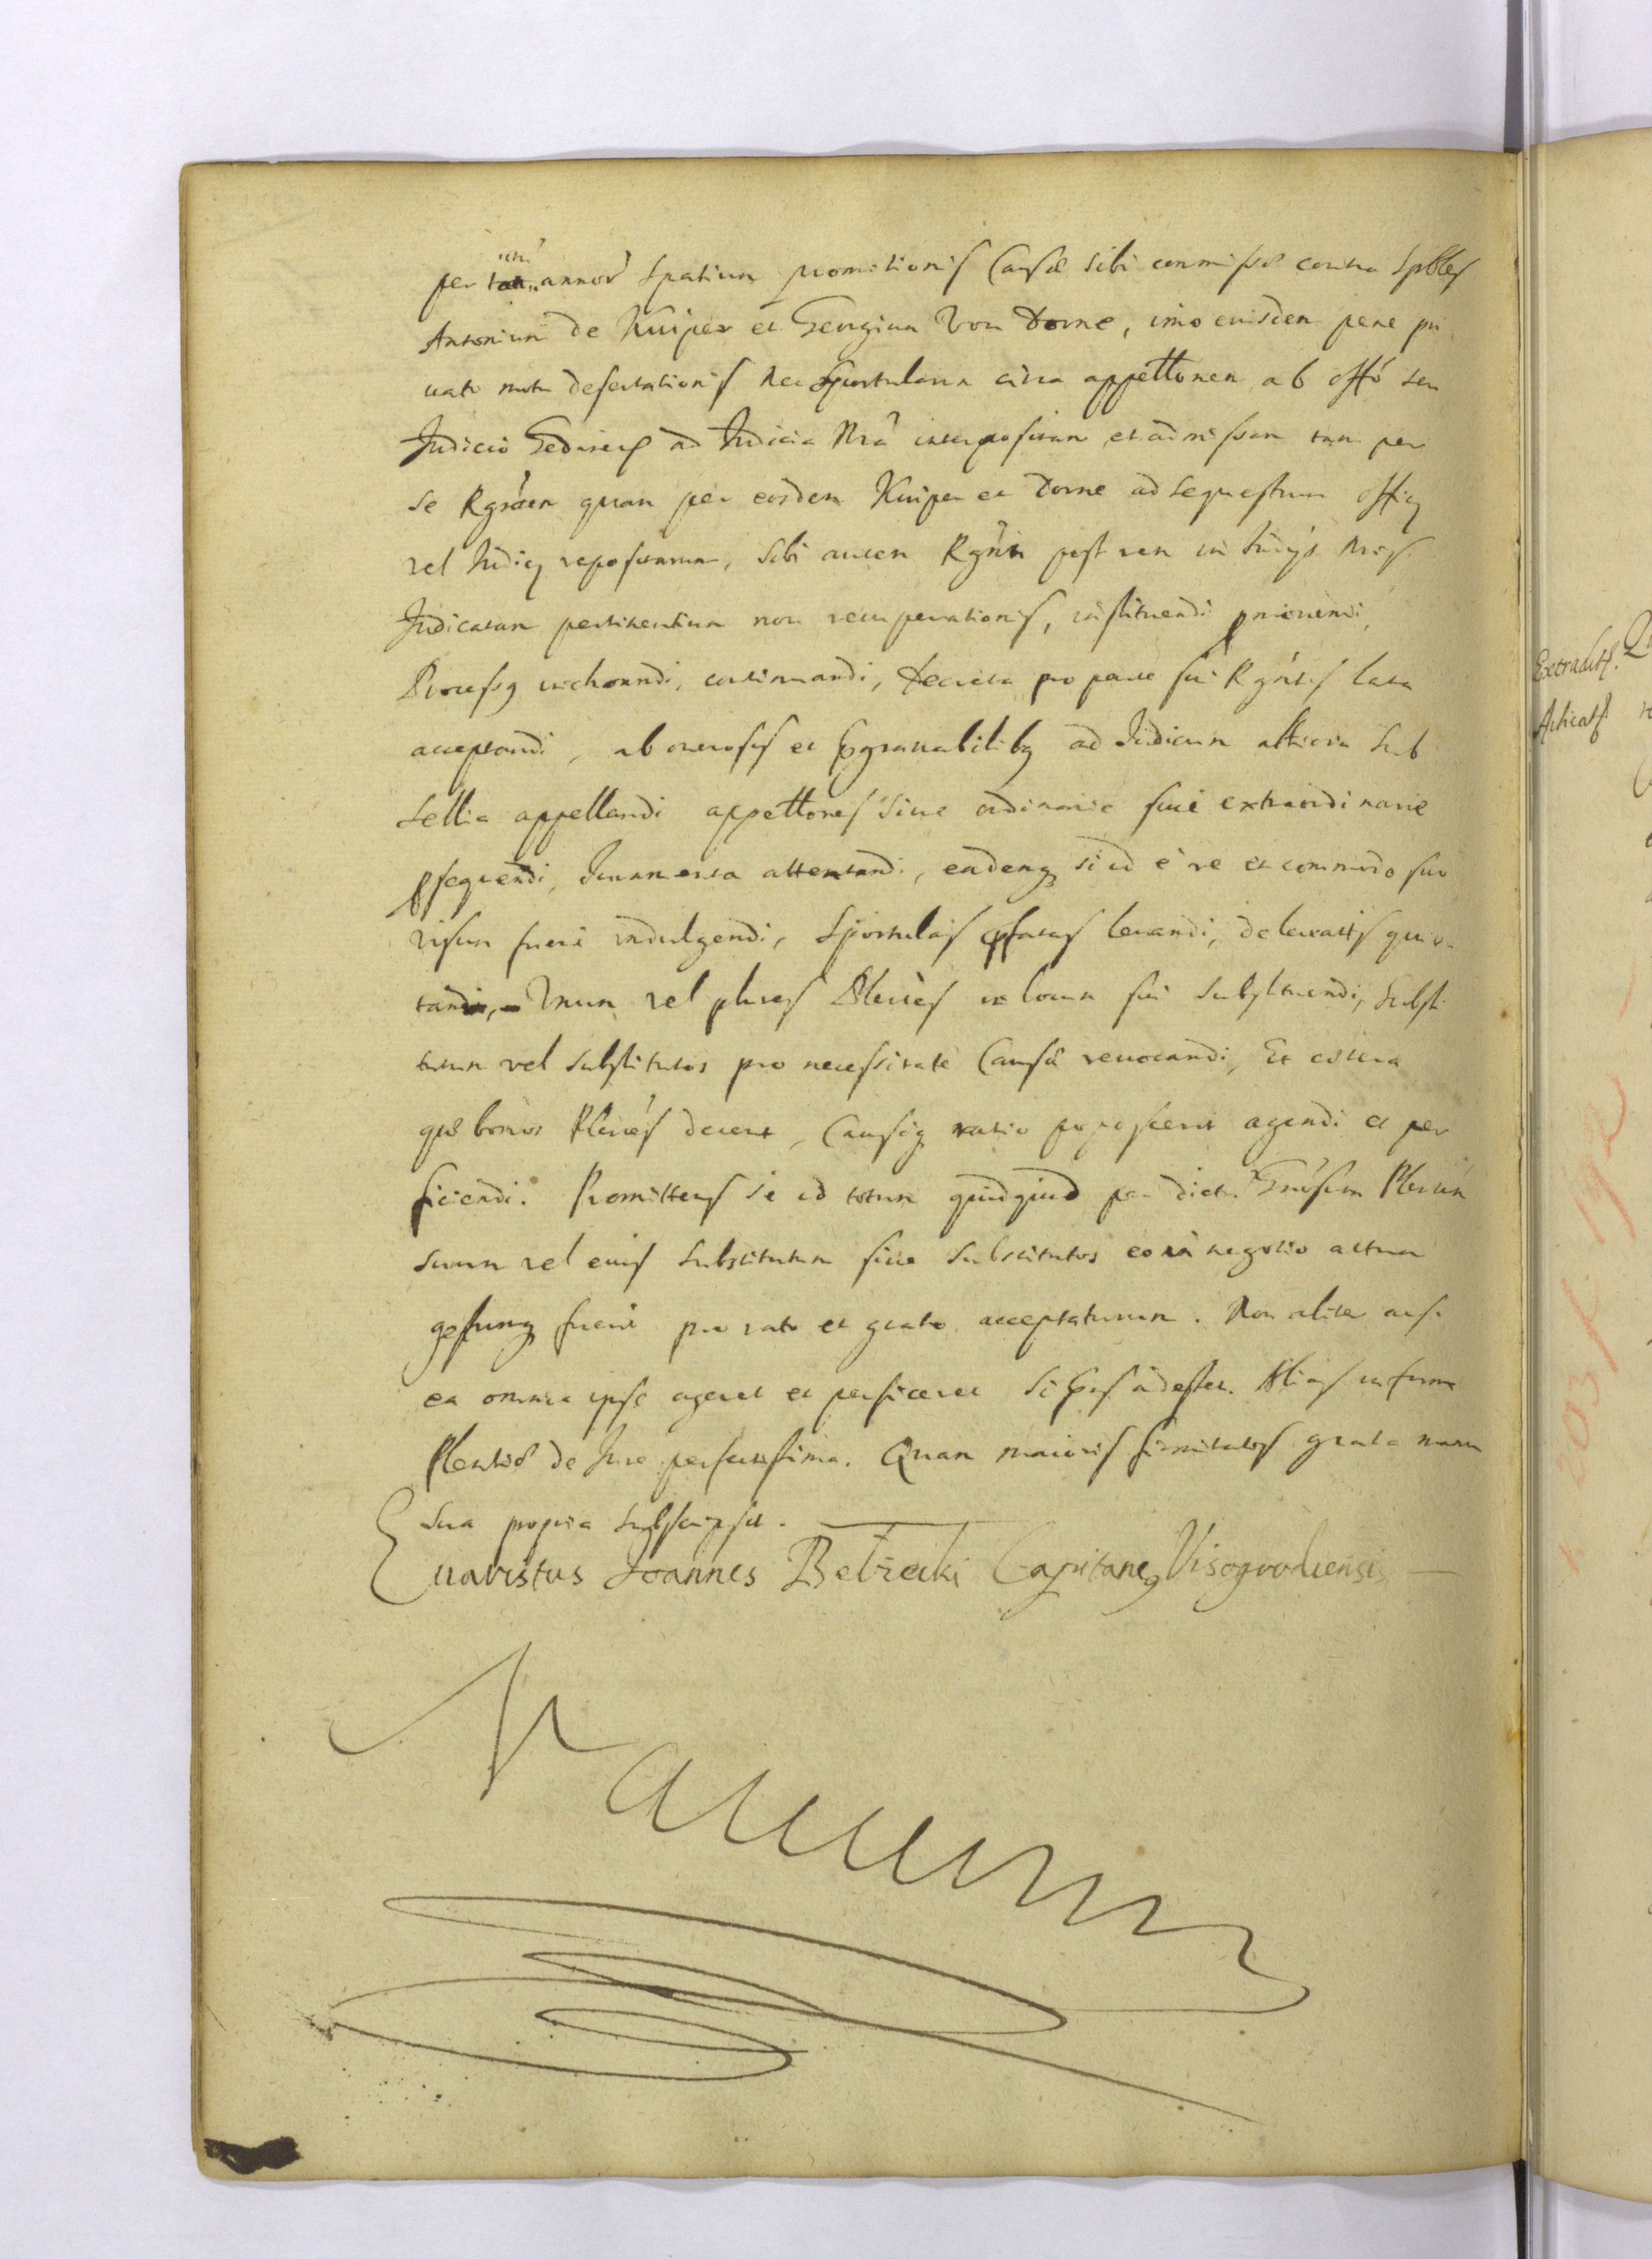 per tot annor̃ spatium promotionis Causæ sibi commissæ contra Spbles
Antonium de Kuiper et Georgium Von Dorne, imo eiusdem pene pri
uato motu desertationis nec Sportularum circa appettonem ab offo seu
Judicio Gedanens ad Judicia Nra interpositam et admissam tam per
se Rgntem quam per eosdem Kuiper et Dorne ad sequestrum officij
vel Judicij repositarum, sibi autem Rgnti post rem in Judicijs Nris
Judicatam pertinentium non recuperationis, instituendi promouendi,
Processq inchoandi, continuandi, Decreta pro parte sui Rgntis lata
acceptandi, ab onerosis et Ggrauabilibq ad Judicium altiora Sub
sellia appellandi appettones siue ordinarie siue extraordinarie
prsequendi, Juramenta attentandi, eademq si id è re et commodo suo
visum fuerit indulgendi, Sportulas pfatas leuandi, de leuatis quie
tandi, Vnum vel plures Plenès in locum sui substituendi, Substi
tutum vel substitutos pro necessitate Causæ reuocandi, Et cætera
quæ bonos Plenes decent, Causæq ratio poposcerit agendi et per
ficiendi. Promittens se id totum quidquid per dict. Gnosum Plenum
suum vel eius substitutum siue substitutos eo in negotio actum
gestumq fuerit pro rato et grato accepturum. Non aliter ac si
ea omnia ipse ageret et perficeret si Gns adesset. Alias in forma
Plentiæ de Jure perfectissima. Quam maioris firmitatis gratia manu
sua propria subscripsit.
Euaristus Joannes Bełzecki Capitaneq Visogrodiensis
Extradit.